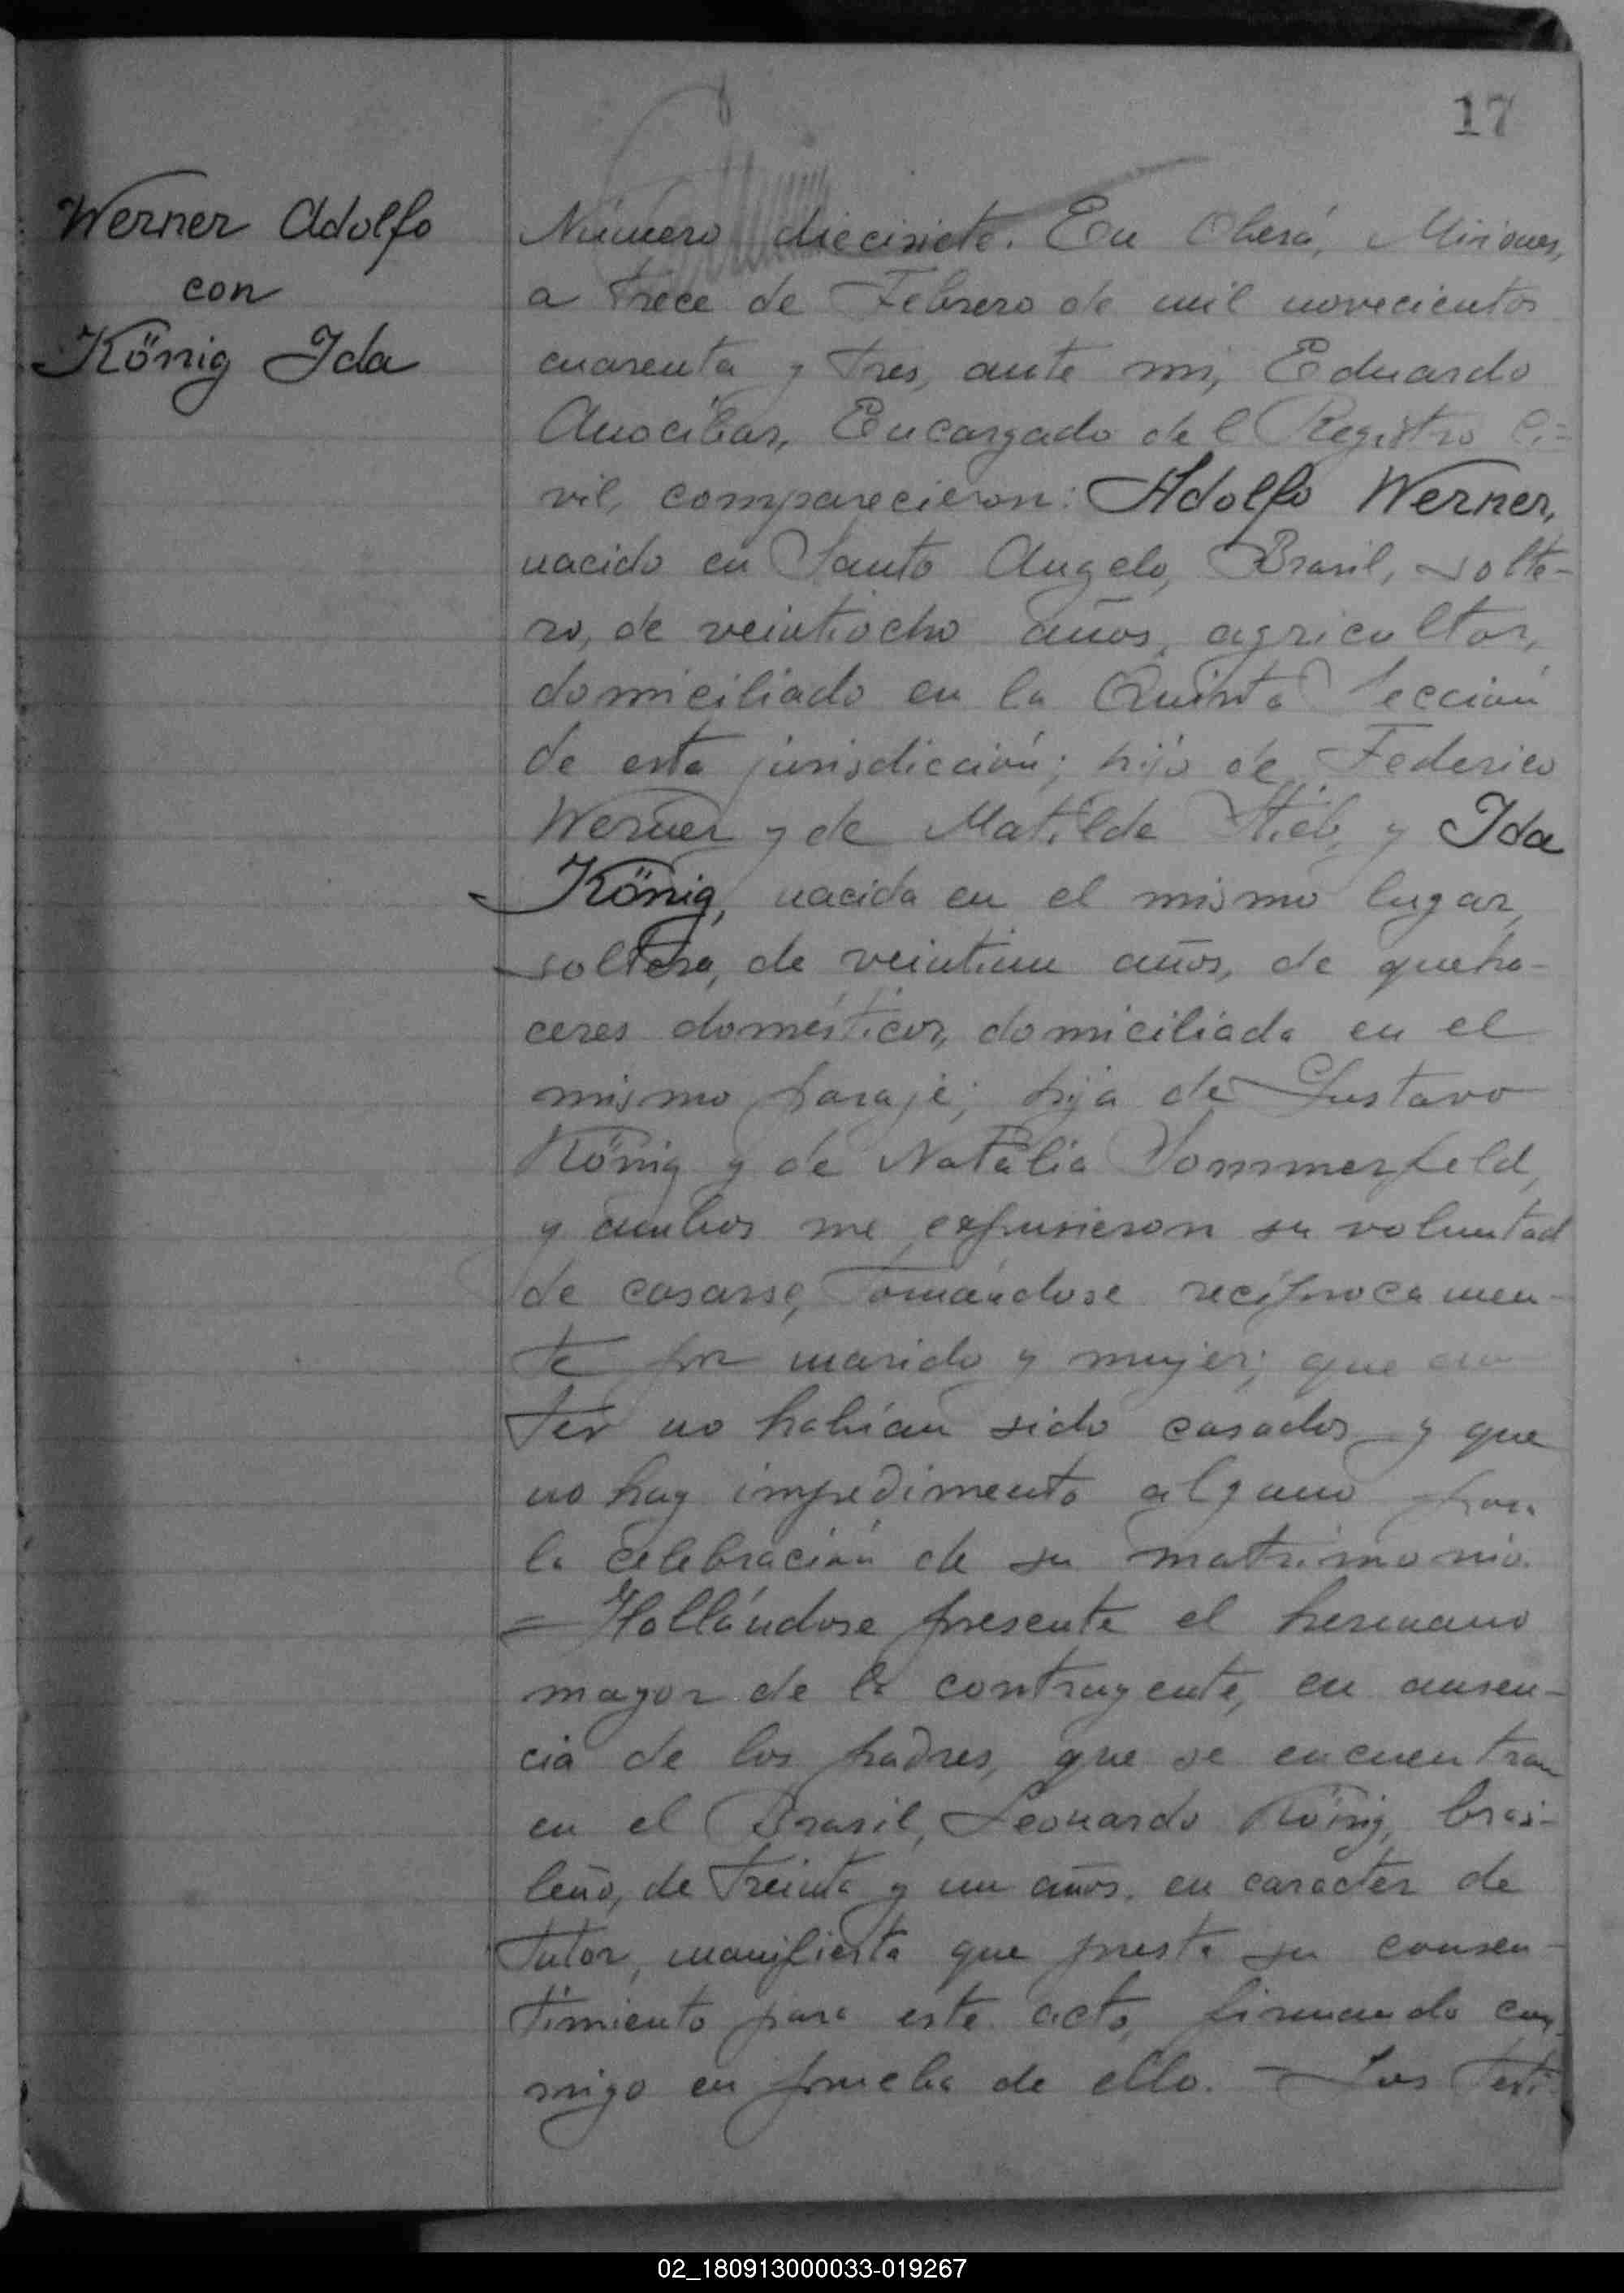 17
Werner Adolfo
con
König Ida
Número diecisiete. En Oberá, Misiones,
a trece de Febrero de mil novecientos
cuarenta y tres, ante mi, Eduardo
Anocibar, Encargado del Registro Ci=
vil, comparecieron: Adolfo Werner,
nacido en Santo Angelo, Brasil, solte-
ro, de veintiocho años, agricultor,
domiciliado en la Quinta Sección
de esta jurisdicción; hijo de Federico
Werner y de Matilde Stieb, y Ida
König, nacida en el mismo lugar,
soltera, de veintiun años, de queha-
ceres domésticos, domiciliada en el
mismo paraje; hija de Gustavo
König y de Natalia Sommerfeld,
y ambos me expusieron su voluntad
de casarse, tomándose recíprocamen-
te por marido y mujer; que an
tes no habían sido casados y que
no hay impedimento alguno para
la celebración de su matrimonio.
= Hallándose presente el hermano
mayor de la contrayente, en ausen-
cia de los padres, que se encuentran
en el Brasil, Leonardo König, brasi-
leño, de treinta y un años, en caracter de
tutor, manifiesta que presta su consen-
timiento para este acto, firmando con
migo en prueba de ello. - Los testi-
02_180913000033-019267